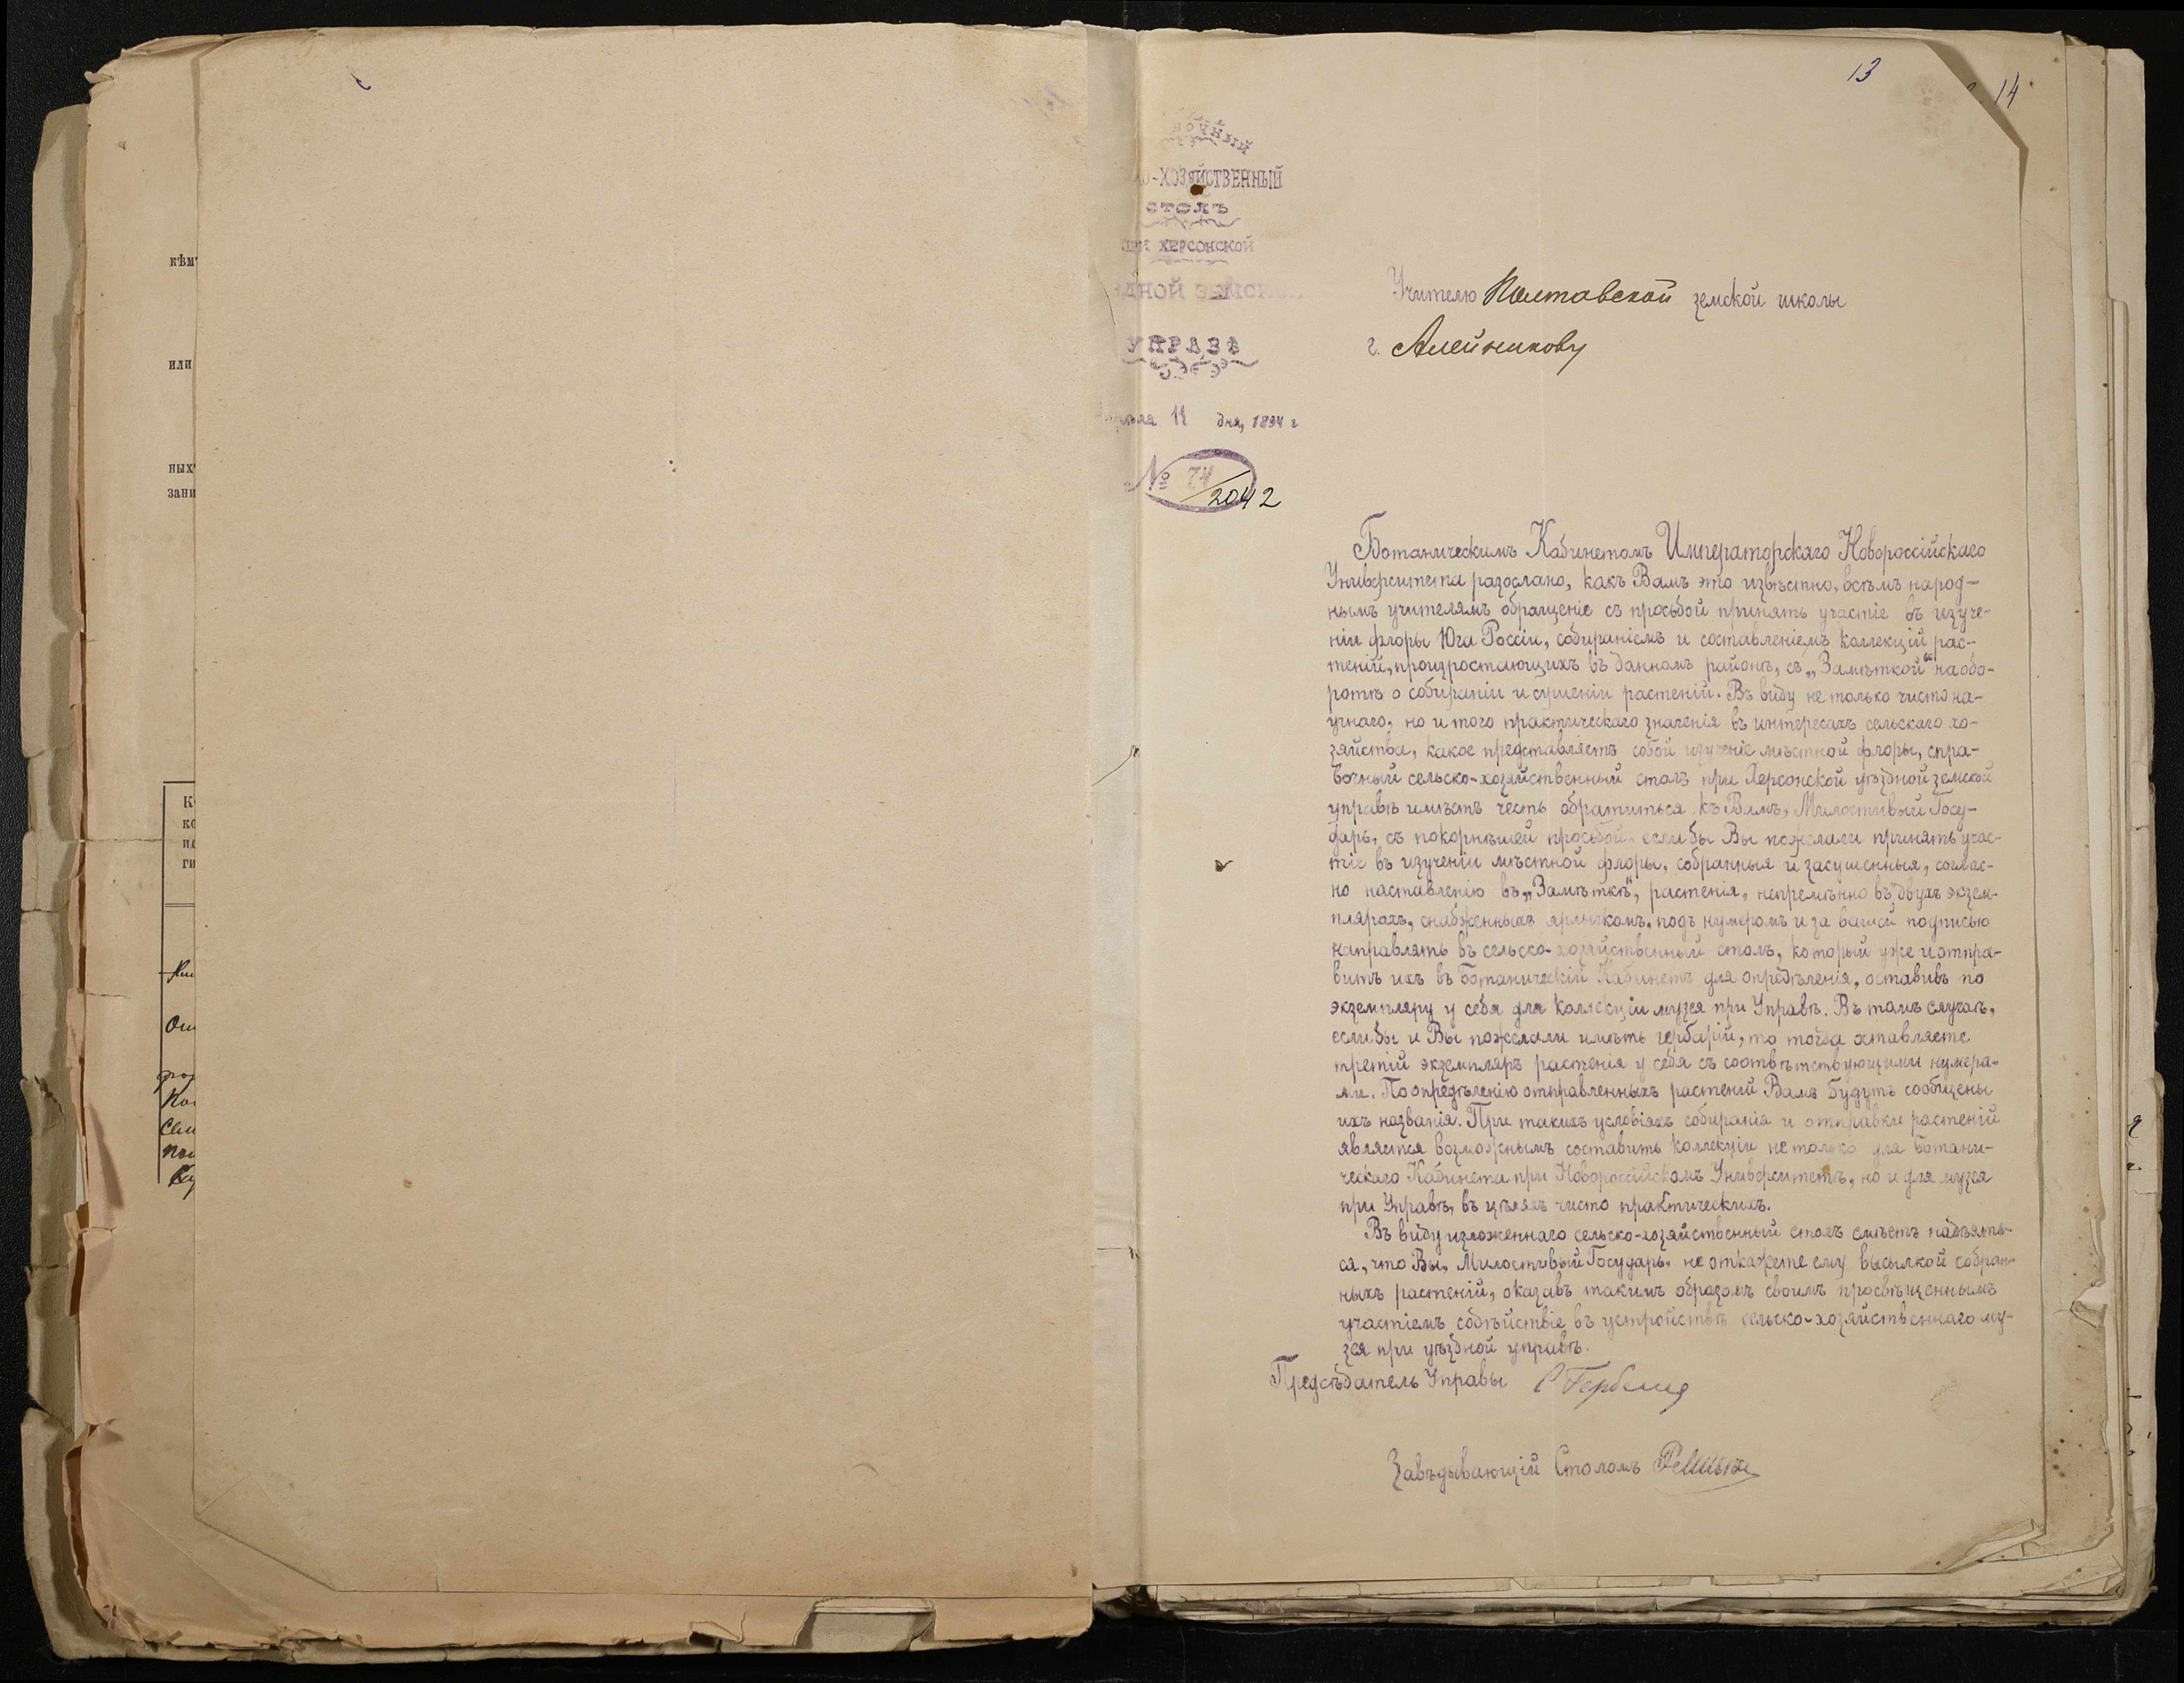 кѣм
или
ных
зани
К
ко
ил
ги
13
14
вочный
о-ХОЗЯЙСТВЕННЫЙ
СТОЛЪ
при ХЕРСОНСКОЙ
ѣздной ЗЕМСК
УПРАВѢ
Апрѣля 11 дня, 1894 г
№ 74/2042
Учителю Полтавской земской школы
г. Алейникову
Ботаническимъ Кабинетомъ Императорскаго Новороссійскаго
Университета разослано, какъ Вамъ это извѣстно, всѣмъ народ-
нымъ учителямъ обращеніе съ просьбой принять участіе въ изуче-
ніи флоры Юга Россіи, собираніемъ и составленіемъ коллекцій рас-
теній, произростающихъ въ данномъ районѣ, съ „Замѣткой“ на обо-
ротѣ о собираніи и сушеніи растеній. Въ виду не только чисто на-
учнаго, но и того практическаго значенія въ интересахъ сельскаго хо-
зяйства, какое представляетъ собой изученіе мѣстной флоры, спра-
вочный сельско-хозяйственный столъ при Херсонской уѣздной земской
управѣ имѣетъ честь обратиться къ Вамъ, Милостивый Госу-
дарь, съ покорнѣшей просьбой, если бы Вы пожелали принять учас-
тіе въ изученіи мѣстной флоры, собранныя и засушенныя, соглас-
но наставленію въ „Замѣткѣ“, растенія, непремѣнно въ двухъ экзем-
плярахъ, снабженныхъ ярлычкомъ, подъ нумеромъ и за вашей подписью
направлять въ сельско-хозяйственный столъ, который уже и отпра-
витъ ихъ въ Ботаническій Кабинетъ для опредѣленія, оставивъ по
экземпляру у себя для коллекціи музея при Управѣ. Въ томъ случаѣ,
если бы и Вы пожелали имѣть гербарій, то тогда оставляете
третій экземпляръ растенія у себя съ соотвѣтствующими нумера-
ми. По опредѣленію отправленныхъ растеній Вамъ будутъ сообщены
ихъ названія. При такихъ условіяхъ собиранія и отправки растеній
является возможнымъ составить коллекціи не только для Ботани-
ческаго Кабинета при Новороссійскомъ Университетѣ, но и для музея
при Управѣ, въ цѣляхъ чисто практическихъ.
Въ виду изложеннаго сельско-хозяйственный столъ смѣетъ надѣять-
ся, что Вы, Милостивый Государь, не откажете ему высылкой собран-
ныхъ растеній, оказавъ такимъ образомъ своимъ просвѣщеннымъ
участіемъ содѣйствіе въ устройствѣ сельско-хозяйственнаго му-
зея при уѣздной управѣ.
Предсѣдатель Управы
Завѣдывающій Столомъ